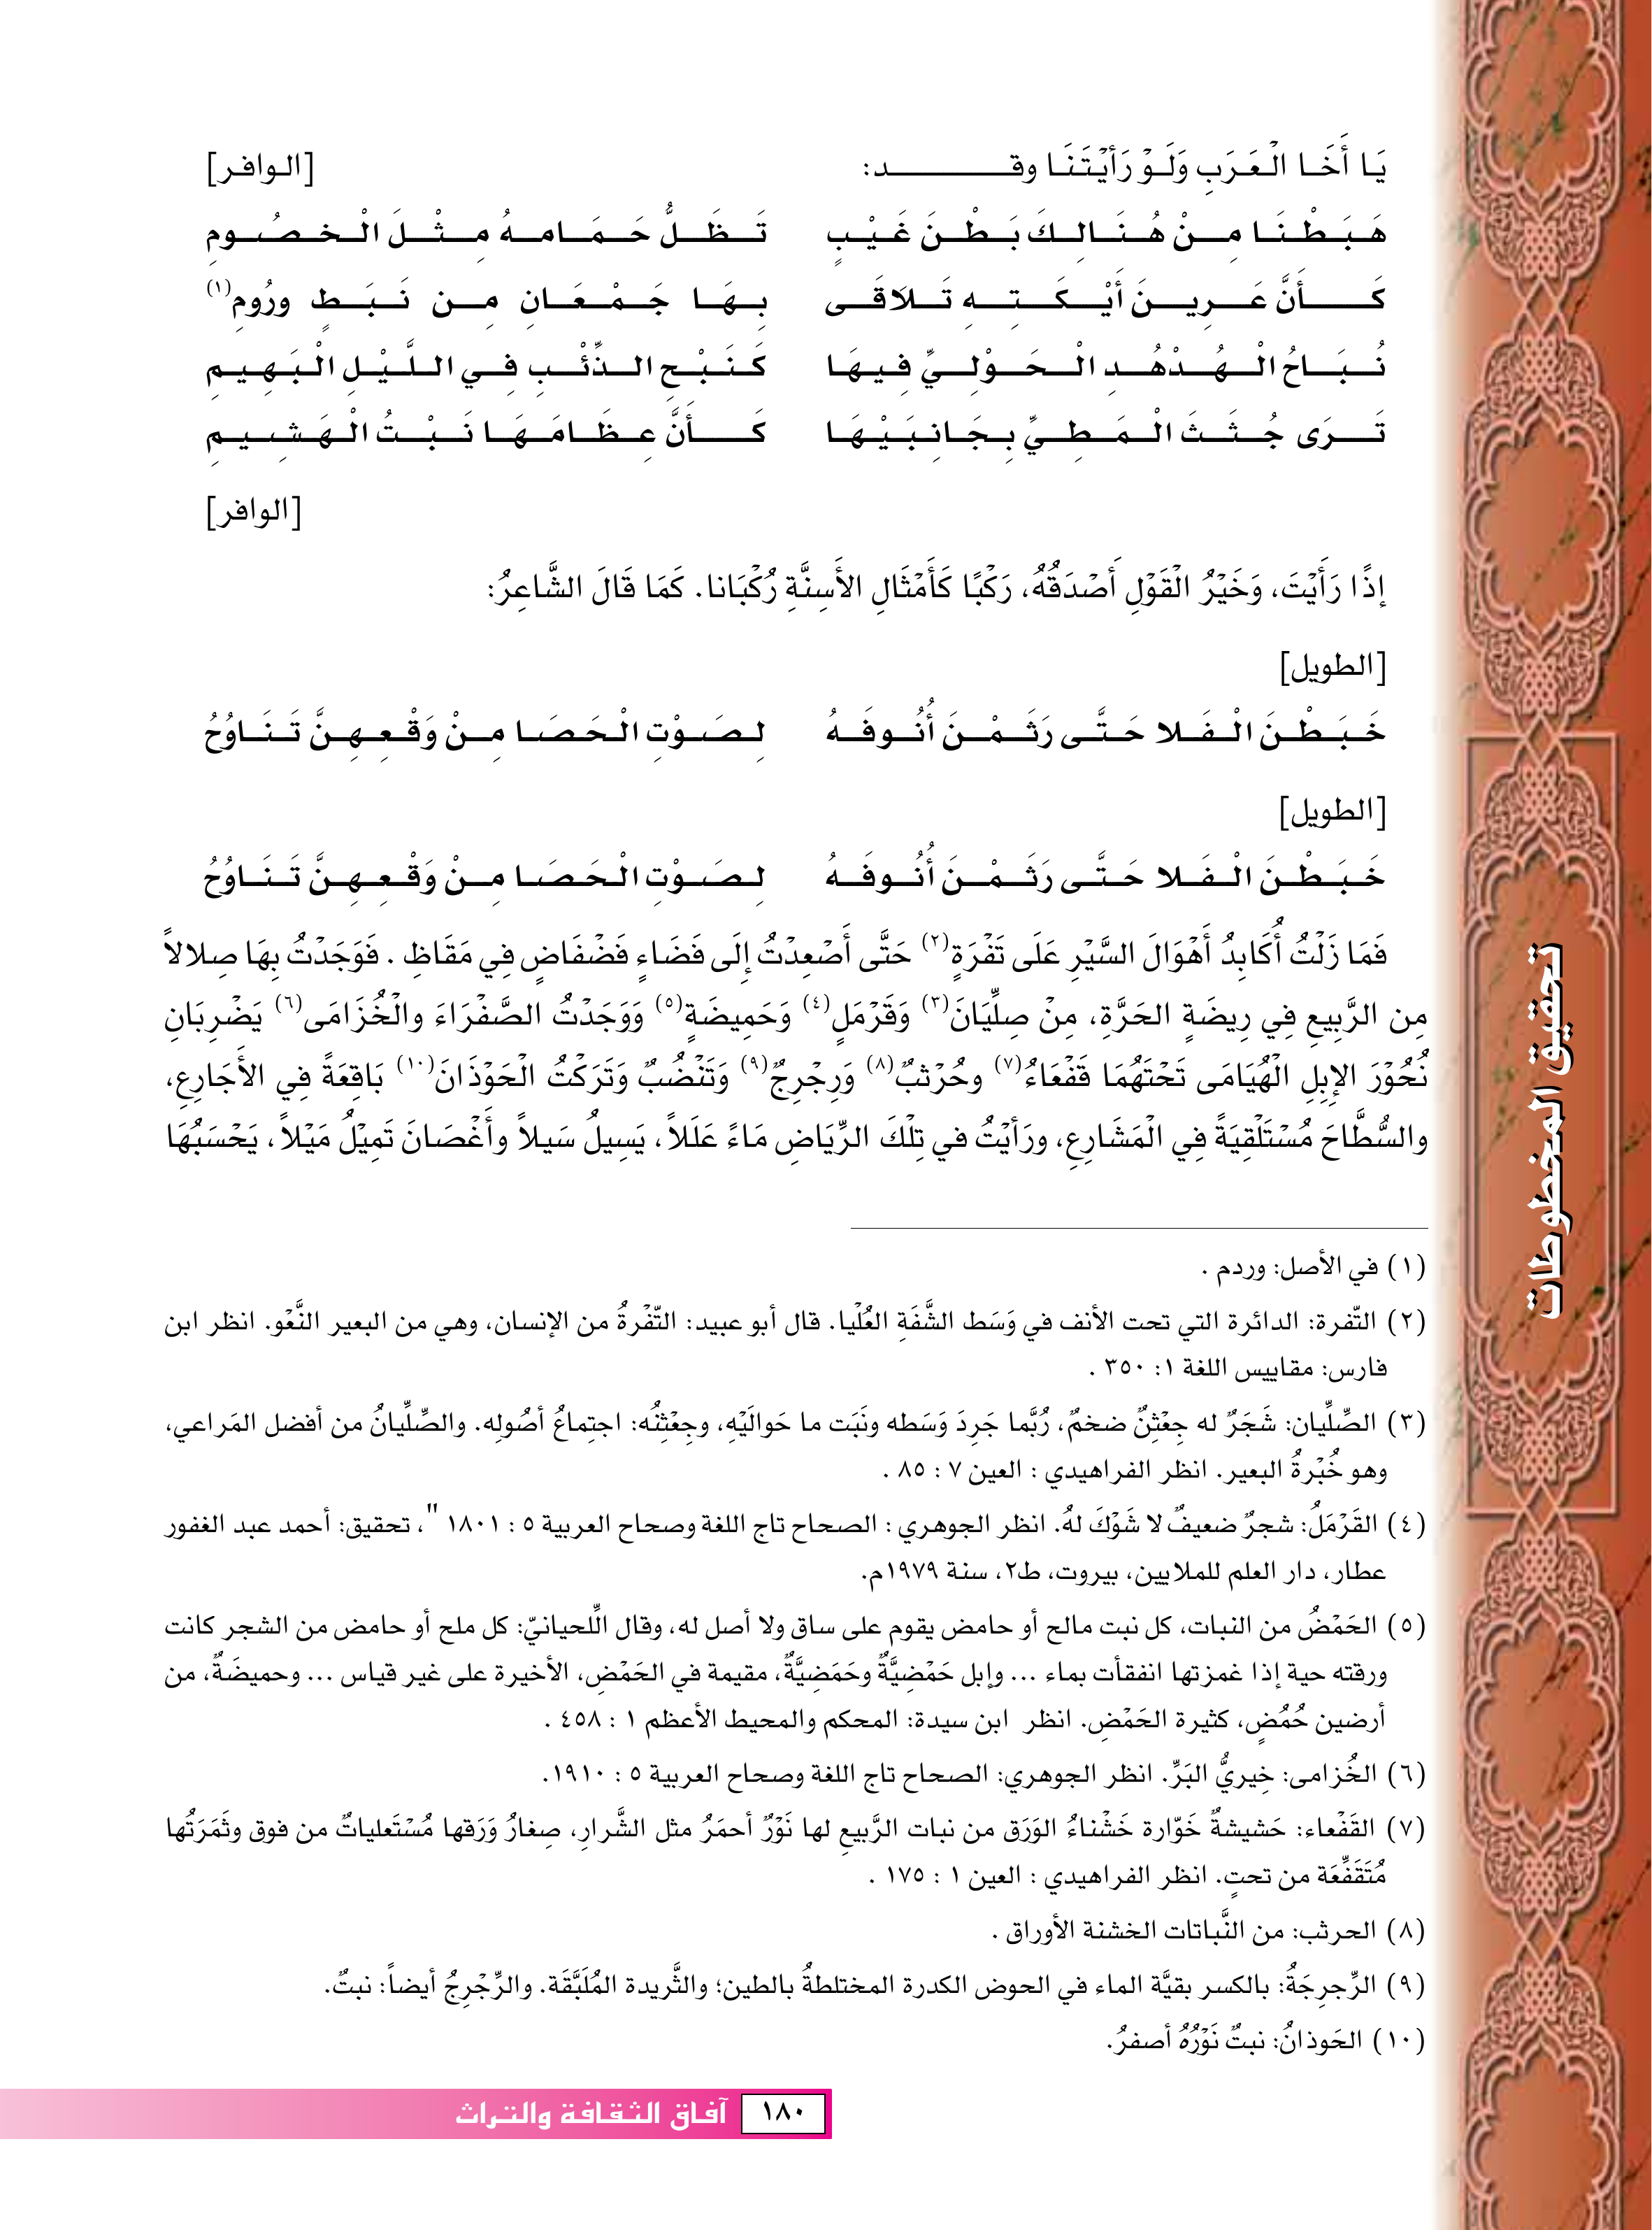 يَا أَخَا الْعَرَبِ وَلَوْ رَأَيْتَنَا وقـــــــد: [الوافر]
هَبَطْنَا مِنْ هُنَالِكَ بَطْنَ غَيْبٍ تَظَلُّ حَمَامهُ مِثْلَ الْخصُومِ
كَأَنَّ عَرِينَ أَيْكَتِهِ تَلاَقَى بِهَا جَمْعَانِ مِن نَبَطٍ ورُومِ(١)
نُبَاحُ الْهُدْهُدِ الْحَوْلِيِّ فِيهَا كَنَبْحِ الذِّئْبِ فِي اللَّيْلِ الْبَهِيمِ
تَرَى جُثَثَ الْمَطِيِّ بِجَانِبَيْهَا كَأَنَّ عِظَامَهَا نَبْتُ الْهَشِيمِ
[الوافر]
إذًا رَأَيْتَ، وَخَيْرُ الْقَوْلِ أَصْدَقُهُ، رَكْبًا كَأَمْثَالِ الأَسِنَّةِ رُكْبَانا. كَمَا قَالَ الشَّاعِرُ:
[الطويل]
خَبَطْنَ الْفَلا حَتَّى رَثَمْنَ أُنُوفَهُ لِصَوْتِ الْحَصَا مِنْ وَقْعِهِنَّ تَنَاوُحُ
[الطويل]
خَبَطْنَ الْفَلا حَتَّى رَثَمْنَ أُنُوفَهُ لِصَوْتِ الْحَصَا مِنْ وَقْعِهِنَّ تَنَاوُحُ
فَمَا زَلْتُ أُكَابِدُ أَهْوَالَ السَّيْرِ عَلَى تَفْرَةٍ(٢) حَتَّى أَصْعِدْتُ إِلَى فَضَاءٍ فَضْفَاضٍ فِي مَقَاظِ . فَوَجَدْتُ بِهَا صِلالاً
مِن الرَّبِيعِ فِي رِيضَةٍ الحَرَّةِ، مِنْ صِلِّيَانَ(٣) وَقَرْمَلٍ(٤) وَحَمِيضَةٍ(٥) وَوَجَدْتُ الصَّفْرَاءَ والْخُزَامَى(٦) يَضْرِبَانِ
نُحُوْرَ الإِبِلِ الْهُيَامَى تَحْتَهُمَا قَفْعَاءُ(٧) وحُرْثبٌ(٨) وَرِجْرِجٌ(٩) وَتَنْضُبٌ وَتَرَكْتُ الْحَوْذَانَ(١٠) بَاقِعَةً فِي الأَجَارِعِ،
والسُّطَّاحَ مُسْتَلْقِيَةً فِي الْمَشَارِعِ، ورَأَيْتُ في تِلْكَ الرِّيَاضِ مَاءً عَلَلاً، يَسِيلُ سَيلاً وأَغْصَانَ تَمِيْلُ مَيْلاً، يَحْسَبُهَا
(١) في الأصل: وردم .
(٢) التّفرة: الدائرة التي تحت الأنف في وَسَط الشَّفَةِ العُلْيا. قال أبو عبيد: التّفْرةُ من الإنسان، وهي من البعير النَّعْو. انظر ابن
فارس: مقاييس اللغة ١: ٣٥٠ .
(٣) الصِّلِّيان: شَجَرٌ له جِعْثِنٌ ضخمٌ، رُبَّما جَرِدَ وَسَطه ونَبَت ما حَوالَيْهِ، وجِعْثِنُه: اجتِماعُ أصُولِه. والصِّلِّيانُ من أفضل المَراعي،
وهو خُبْرةُ البعير. انظر الفراهيدي : العين ٧ : ٨٥ .
(٤) القَرْمَلُ: شجرٌ ضعيفٌ لا شَوْكَ لهُ. انظر الجوهري : الصحاح تاج اللغة وصحاح العربية ٥ : ١٨٠١ "، تحقيق: أحمد عبد الغفور
عطار، دار العلم للملايين، بيروت، ط٢، سنة ١٩٧٩م.
(٥) الحَمْضُ من النبات، كل نبت مالح أو حامض يقوم على ساق ولا أصل له، وقال الِّلحيانيّ: كل ملح أو حامض من الشجر كانت
ورقته حية إذا غمزتها انفقأت بماء ... وإبل حَمْضِيَّةٌ وحَمَضِيَّةٌ، مقيمة في الحَمْضِ، الأخيرة على غير قياس ... وحميضَةٌ، من
أرضين حُمُضٍ، كثيرة الحَمْضِ. انظر ابن سيدة: المحكم والمحيط الأعظم ١ : ٤٥٨ .
(٦) الخُزامى: خِيريُّ البَرِّ. انظر الجوهري: الصحاح تاج اللغة وصحاح العربية ٥ : ١٩١٠.
(٧) القَفْعاء: حَشيشةٌ خَوّارة خَشْناءُ الوَرَق من نبات الرَّبيعِ لها نَوْرٌ أحمَرُ مثل الشَّرارِ، صِغارُ وَرَقها مُسْتَعلياتٌ من فوق وثَمَرَتُها
مُتَقَفِّعَة من تحتٍ. انظر الفراهيدي : العين ١ : ١٧٥ .
(٨) الحرثب: من النَّباتات الخشنة الأوراق .
(٩) الرِّجرِجَةُ: بالكسر بقيَّة الماء في الحوض الكدرة المختلطةُ بالطين؛ والثَّريدة المُلَبَّقَة. والرِّجْرِجُ أيضاً: نبتٌ.
(١٠) الحَوذانُ: نبتٌ نَوْرُهُ أصفرُ.
تحقيق المخطوطات
١٨٠ آفاق الثقافة والتراث